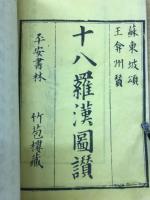 蘇東坡頌
王弇州贊
十八羅漢圖讚
平安書林 竹苞樓藏